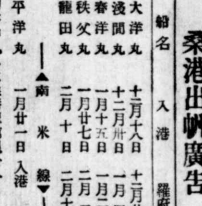 桑港出帆廣告
船名 入港 羅府
大洋丸 十二月十八日
淺間丸 十二月卅日
春洋丸 一月十五日
秩父丸 一月廿七日
龍田丸 二月十日
南米線
平洋丸 一月廿一日入港